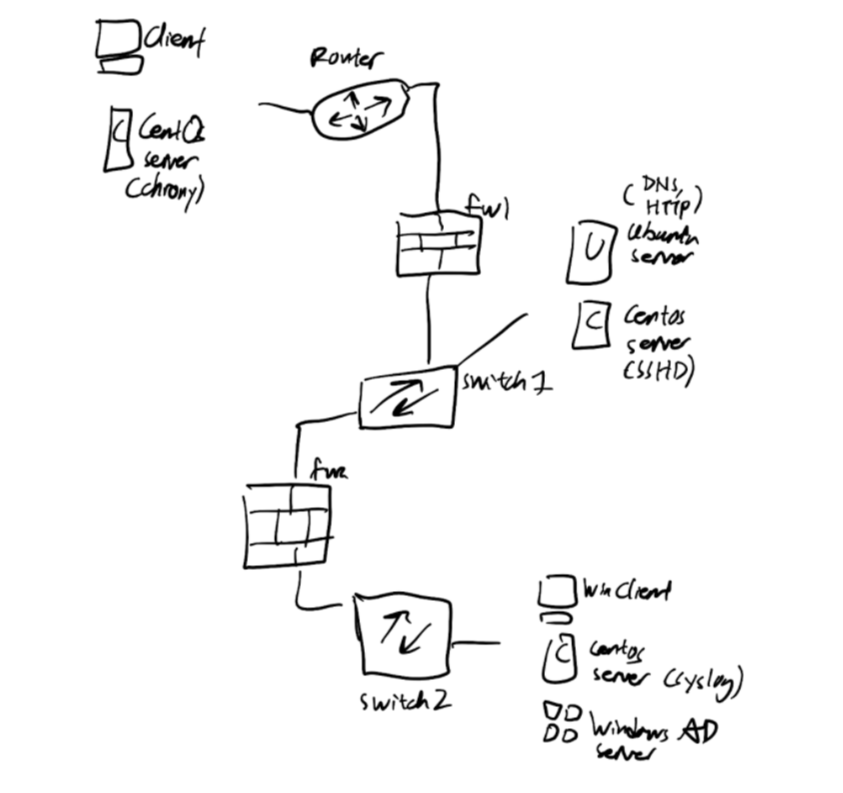 Client
Router
C
CentOS
server
(chrony)
fw1
(DNS,
HTTP)
U
Ubuntu
server
C
Centos
server
(SSHD)
switch1
fw2
Win Client
C
Centos
server (syslog)
switch2
Windows AD
server